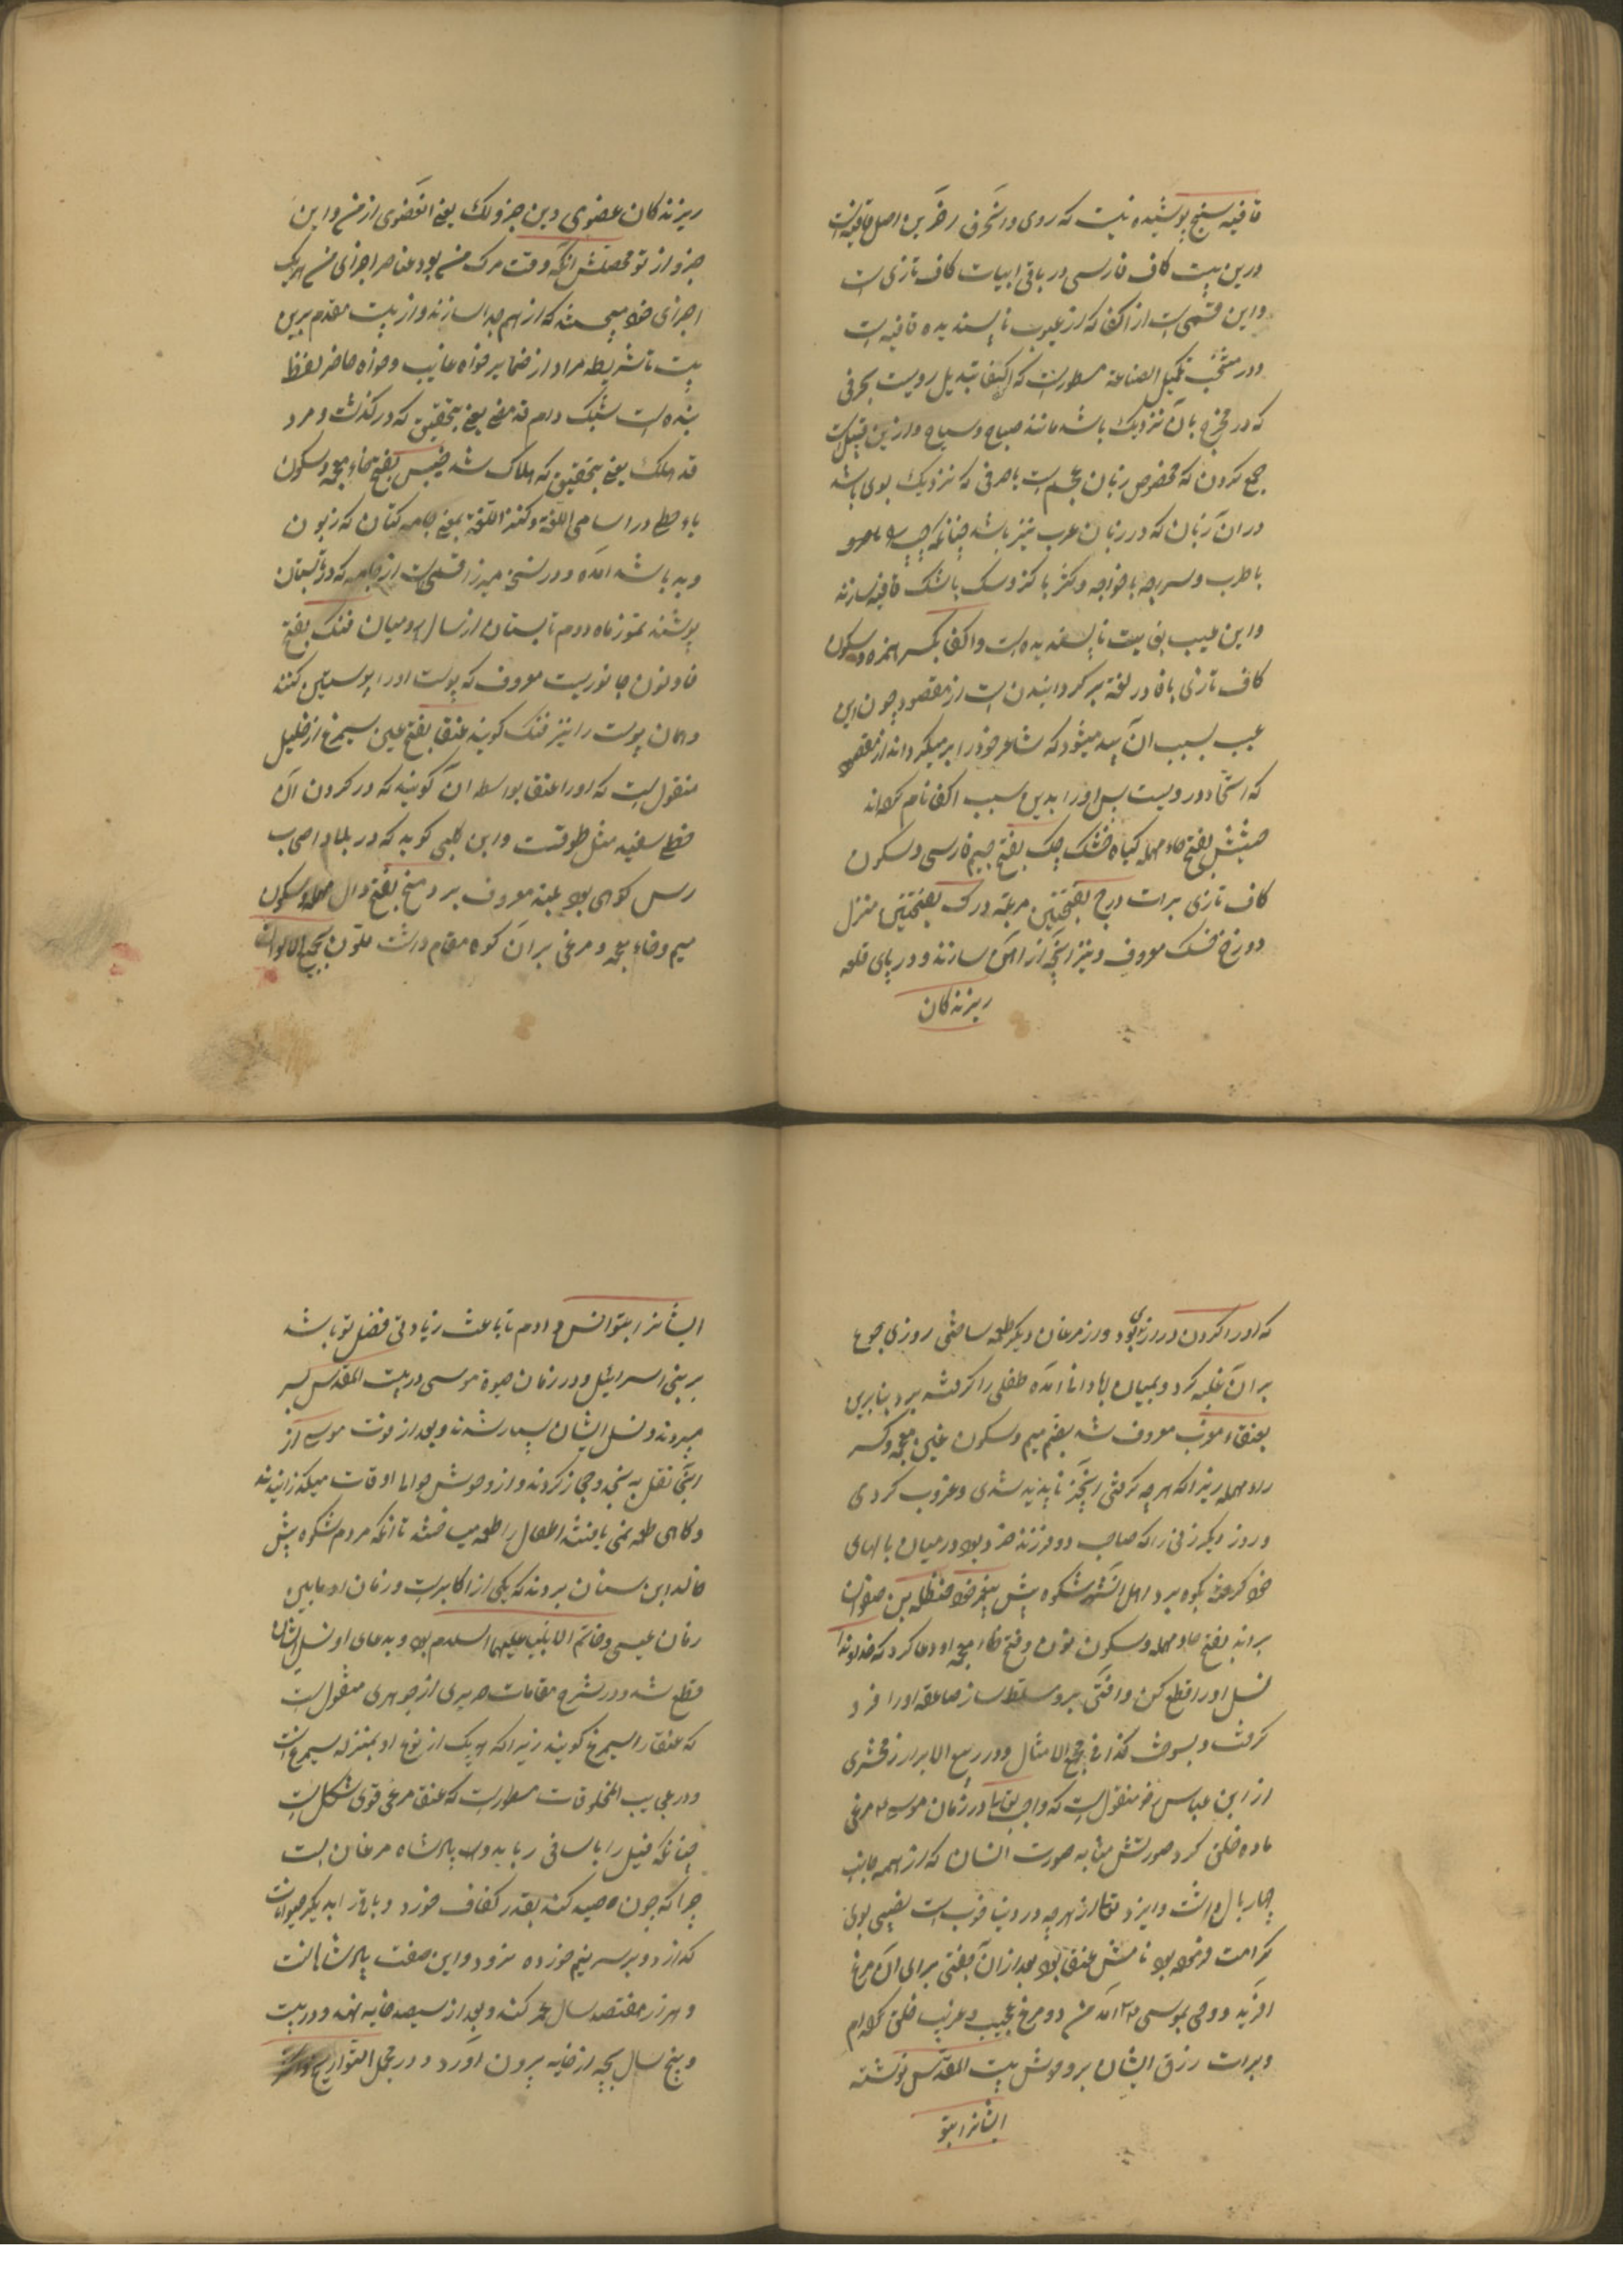 قافیه سنج پوشیده نیست که روی و آنحرف آخرین اصل قافیه است
درین بیت کاف فارسی در باقی ابیات کاف تازی است
و این قسمی است از اکفا که از عیوب ناپسندیده قافیه است
و در منتخب تکمیل الصناعه مسطورست که اکفا تبدیل رویست بحرفی
که در مخرج بآن نزدیک باشد مانند صباح و سیاه و ازین قبیل است
جمع کردن که مخصوص زبان عجم است با حرفی که نزدیک بوی باشد
در آن زبان که در زبان عرب نیز باشد چنانکه چپ را
با طرب و سرایچه با خواجه و کژ با کز و سگ با شک قافیه سازند
و این عیب بغایت ناپسندیده است و اکفا بکسر همزه و سکون
کاف تازی با فا در لغة برگردانیدن است از مقصود چون این
عیب بسبب آن پیدا میشود که شاعر خود را برمیگرداند از مقصود
که اتحاد رویست پس او را بدین سبب اکفا نام کرده‌اند
حشیش بفتح حاء مهمله گیاه خشک چک بفتح جیم فارسی و سکون
کاف تازی برات درج بفتحتین مرتبه درک بفتحتین منزل
دوزخ خسک معروف و نیز آنچه از آهن سازند و در پای قلعه
ریزند کان
ریزند کان عضوی و ین جزو لک یعنی آن عضوی از من و این
جزو از تو محصلش آنکه وقت مرک من بود عناصر اجزای من هر یک
اجزای خود میجستند که از هم جدا سازند و از بیت مقدم برین
بیت تا شریطه مراد از ضمایر خواه غایب و خواه حاضر لفظ
بنده است شبک دام قد مضی یعنی بتحقیق که درگذشت و مرد
قد هلک یعنی بتحقیق که هلاک شد خیش بفتح خاء معجمه و سکون
یاء حطی در اسامی اللغة و کنز اللغة بمعنی جامه کتان که زبون
و بد باشد آمده و در نسخه میرزا قسمی است از جامه که در تابستان
پوشند تموز ماه دوم تابستان از سال رومیان فنک بفتح
فا و نون جانوریست معروف که پوست او را پوستین کنند
و همان پوست را نیز فنک گویند عنقا بفتح عین سیمرغ از خلیل
منقولست که او را عنقا بواسطه آن گویند که در گردن آن
خطی سفید مثل طوقست و ابن کلبی گوید که در بلاد اصحاب
رس کوهی بود بلند معروف بر دمخ بفتح دال مهمله و سکون
میم و خاء معجمه و مرغی بر آن کوه مقام داشت ملون بجمیع الالوان
که او را گردن درازی بود و از مرغان دیگر طعمه ساختی روزی جوع
بر آن غلبه کرد و بمیان آبادانی آمده طفلی را گرفته ببرد بنابرین
بعنقاء مغرب معروف شد بضم میم و سکون غین معجمه و کسر
راء مهمله زیرا که هر چه گرفتی از آنجا ناپدید شدی و غروب کردی
و روز دیگر زنی را که صاحب دو فرزند خرد بود در میان بالهای
خود گرفته بکوه برد اهل آنشهر شکوه پیش پیغمبر خود حنظله بن صفوان
بردند بفتح حاء مهمله و سکون نون و فتح ظاء معجمه او دعا کرد که خداوندا
نسل او را قطع کن و آفتی برو مسلط ساز صاعقه او را فرو
گرفت و بسوخت کذا فی مجمع الامثال و در ربیع الابرار زمخشری
از ابن عباس رض منقولست که واجب تعالی در زمان موسی ع مرغی
ماده خلق کرد صورتش مشابه صورت انسان که از همه جانب
چهار بال داشت و ایزد تعالی از هر چه در دنیا خوب است نصیبی بوی
کرامت فرموده بود نامش عنقا بود بعد از آن جفتی برای آن مرغ
آفرید و وحی بموسی ع آمد من دو مرغ عجیب و غریب خلق کرده‌ام
و برات رزق ایشان بر وحوش بیت المقدس نوشته
ایشانرا بتو
ایشانرا بتو انس دادم تا باعث زیادتی فضل تو باشد
بر بنی اسرائیل و در زمان حیوة موسی در بیت المقدس بسر
میبردند و نسل ایشان بسیار شدند و بعد از فوت موسی از
آنجا نقل به نجد و حجاز کردند و از وحوش هوا اوقات میگذرانیدند
و گاهی طعمه نمی یافتند اطفال را طعمه میساختند تا آنکه مردم شکوه پیش
خالد ابن سنان بردند که یکی از اکابرست و زمان او مابین
زمان عیسی و خاتم الانبیا علیهما السلام بود و بدعای او نسل ایشان
قطع شد و در شرح مقامات حریری از جوهری منقول است
که عنقا را سیمرغ گویند زیرا که هر یک از نوع او بمنزله سیمرغ است
و در عجایب المخلوقات مسطورست که عنقا مرغی قوی شکل است
چنانکه فیل را بآسانی رباید و او پادشاه مرغان است
چرا که چون صید کند بقدر کفاف خورد و باقی را بدیگر حیوانات
گذارد و بر سر نیم خورده نرود و این صفت پادشاهانست
و هزار و هفتصد سال عمر کند و بعد از سیصد خایه نهد و در بیست
و پنج سال بچه از خایه بیرون آورد و در مجمل التواریخ